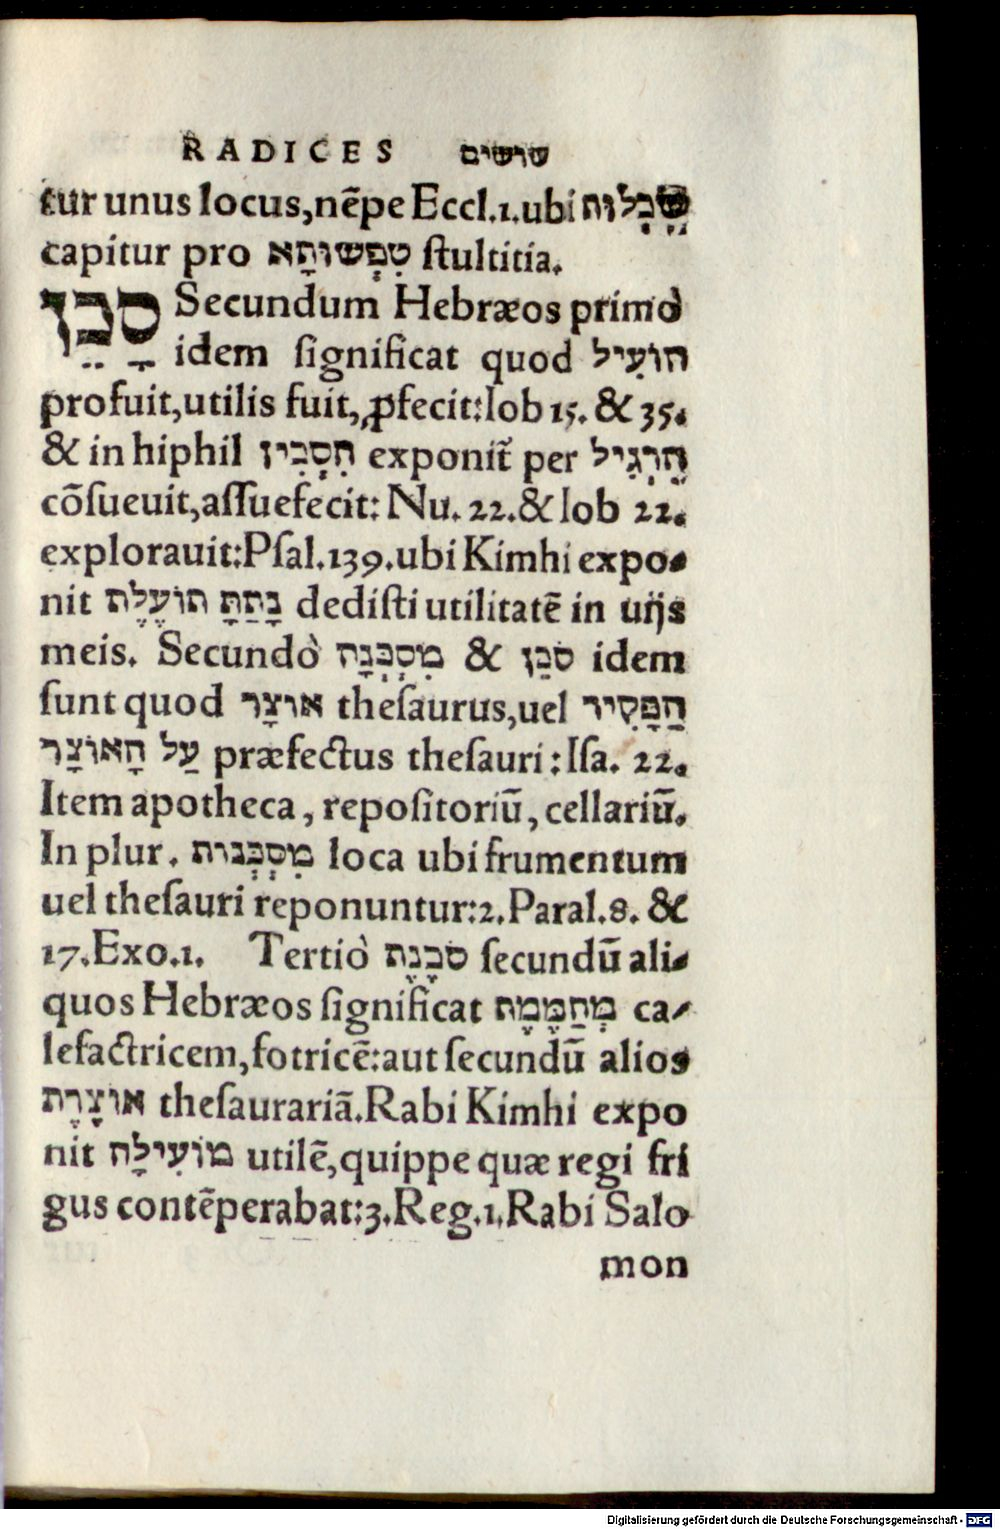 RADICES שרשים
tur unus locus,nēpe Eccl.1.ubi שִׂכְלוּת
capitur pro טִפְשׁוּתָא ſtultitia.
סָכַן Secundum Hebræos primò
idem ſignificat quod הוֹעִיל
profuit,utilis fuit,ꝓfecit:Iob 15. & 35.
& in hiphil הִסְכִּין exponit̃ per הֶרְגִּיל
cōſueuit,aſſuefecit: Nu. 22.& Iob 22.
explorauit:Pſal.139.ubi Kimhi expo-
nit נָתַתָּ תוֹעֶלֶת dediſti utilitatē in uijs
meis. Secundò סֹכֵן & מִסְכְּנָה idem
ſunt quod אוצָר theſaurus,uel הַפָּקִיד
עַל הָאוֹצָר præfectus theſauri:Iſa. 22.
Item apotheca, repoſitoriū, cellariū.
In plur. מִסְכְּנות loca ubi frumentum
uel theſauri reponuntur:2.Paral.8. &
17.Exo.1. Tertiò סֹכֶנֶת ſecundū ali-
quos Hebræos ſignificat מְחַמֶּמֶת ca-
lefactricem,fotricē:aut ſecundū alios
אוֹצֶרֶת theſaurariā.Rabi Kimhi expo
nit מוֹעִילָה utilē,quippe quæ regi fri
gus contēperabat:3.Reg.1.Rabi Salo
mon
Digitalisierung gefördert durch die Deutsche Forschungsgemeinschaft - DFG